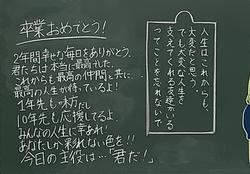 卒業おめでとう!
2年間幸せな毎日をありがとう。
君たちは本当に最高でした。
これからも最高の仲間と共に、
最高の人生が待っているよ!
1年先も味方だし
10年先も応援してるよ。
みんなの人生に幸あれ!
あなたしか彩れない色を!!
今日の主役は…「君だ!」
人生はこれからも、
大変だと思う。
でも大変な人生を
支えてくれる友達がいる
ってことを忘れないで